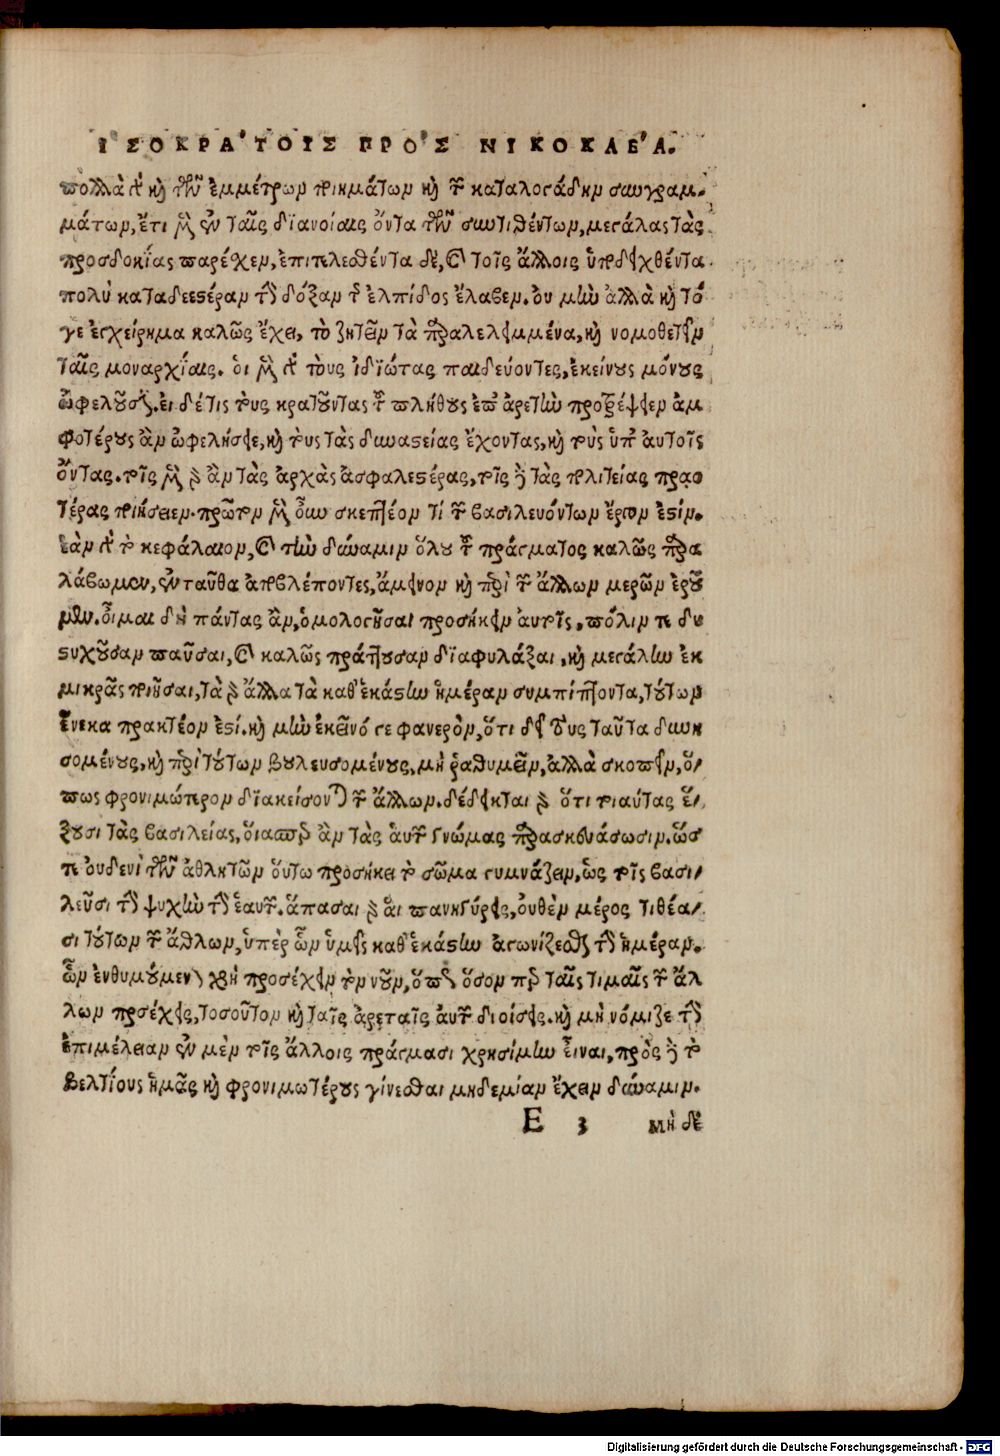 ἸΣΟΚΡΑ'ΤΟΙΣ ΠΡΟ'Σ ΝΙΚΟΚΛΕ'Α.
πολλὰ δὲ καὶ τῶν ἐμμέτρων ποιημάτων καὶ τῶν καταλογάδην συγγραμ-
μάτων, ἔτι μὲν ἐν ταῖς διανοίαις ὄντα τῶν συντιθέντων, μεγάλας τὰς
προσδοκίας παρέχεν, ἐπιτελεσθέντα δὲ, καὶ τοῖς ἄλλοις ὑποδειχθέντα
πολὺ καταδεεστέραν τὴν δόξαν τῆς ἐλπίδος ἔλαβεν. Οὐ μὴν ἀλλὰ καὶ τό
γε ἐγχείρημα καλῶς ἔχει, τὸ ζητεῖν τὰ παραλελειμμένα, καὶ νομοθετεῖν
ταῖς μοναρχίαις. Οἱ μὲν γὰρ τοὺς ἰδιώτας παιδεύοντες, ἐκείνους μόνους
ὠφελοῦσιν. εἰ δέ τις τοὺς κρατοῦντας τοῦ πλήθους ἐπ' ἀρετὴν προτρέψειεν ἀμ
φοτέρους ἂν ὠφελήσειε, καὶ τοὺς τὰς δυναστείας ἔχοντας, καὶ τοὺς ὑπ' αὐτοῖς
ὄντας. τοῖς μὲν γὰρ ἂν τὰς ἀρχὰς ἀσφαλεστέρας, τοῖς δὲ τὰς πολιτείας πραο
τέρας ποιήσειεν. πρῶτον μὲν οὖν σκεπτέον τί τῶν βασιλευόντων ἔργον ἐστίν.
ἐὰν γὰρ τὸ κεφάλαιον, καὶ τὴν δύναμιν ὅλου τοῦ πράγματος καλῶς παρα
λάβωμεν, ἐνταῦθα ἀποβλέποντες, ἄμεινον καὶ περὶ τῶν ἄλλων μερῶν ἐροῦ
μεν. οἶμαι δὴ πάντας ἂν, ὁμολογῆσαι προσήκειν αὐτοῖς, πόλιν τε δυ
στυχοῦσαν παῦσαι, καὶ καλῶς πράττουσαν διαφυλάξαι, καὶ μεγάλην ἐκ
μικρᾶς ποιῆσαι, τὰ γὰρ ἄλλα τὰ καθ' ἑκάστην ἡμέραν συμπίπτοντα, τούτων
ἕνεκα πρακτέον ἐστί. καὶ μὴν ἐκεῖνό γε φανερὸν, ὅτι δεῖ τοὺς ταῦτα διοικη
σομένους, καὶ περὶ τούτων βουλευσομένους, μὴ ῥαθυμεῖν, ἀλλὰ σκοπεῖν, ὅ-
πως φρονιμώτερον διακείσονται τῶν ἄλλων. δέδεικται γὰρ ὅτι τοιαύτας ἕ-
ξουσι τὰς βασιλείας, οἵας περ ἂν τὰς αὑτῶν γνώμας παρασκευάσωσιν. ὥς
τε οὐδενὶ τῶν ἀθλητῶν οὕτω προσήκει τὸ σῶμα γυμνάζειν, ὡς τοῖς βασι-
λεῦσι τὴν ψυχὴν τὴν ἑαυτῶν. ἅπασαι γὰρ αἱ πανηγύρεις, οὐθὲν μέρος τιθέα-
σι τούτων τῶν ἄθλων, ὑπὲρ ὧν ὑμεῖς καθ' ἑκάστην ἀγωνίζεσθε τὴν ἡμέραν.
ὧν ἐνθυμούμενον χρὴ προσέχειν τὸν νοῦν, ὅπως ὅσον περ ταῖς τιμαῖς τῶν ἄλ
λων προσέχεις, τοσοῦτον καὶ ταῖς ἀρεταῖς αὐτῶν διοίσεις. καὶ μὴ νόμιζε τὴν
ἐπιμέλειαν ἐν μὲν τοῖς ἄλλοις πράγμασι χρησίμην εἶναι, πρὸς δὲ τὸ
βελτίους ἡμᾶς καὶ φρονιμωτέρους γίνεσθαι μηδεμίαν ἔχειν δύναμιν.
E 3 μὴ δὲ
Digitalisierung gefördert durch die Deutsche Forschungsgemeinschaft - DFG